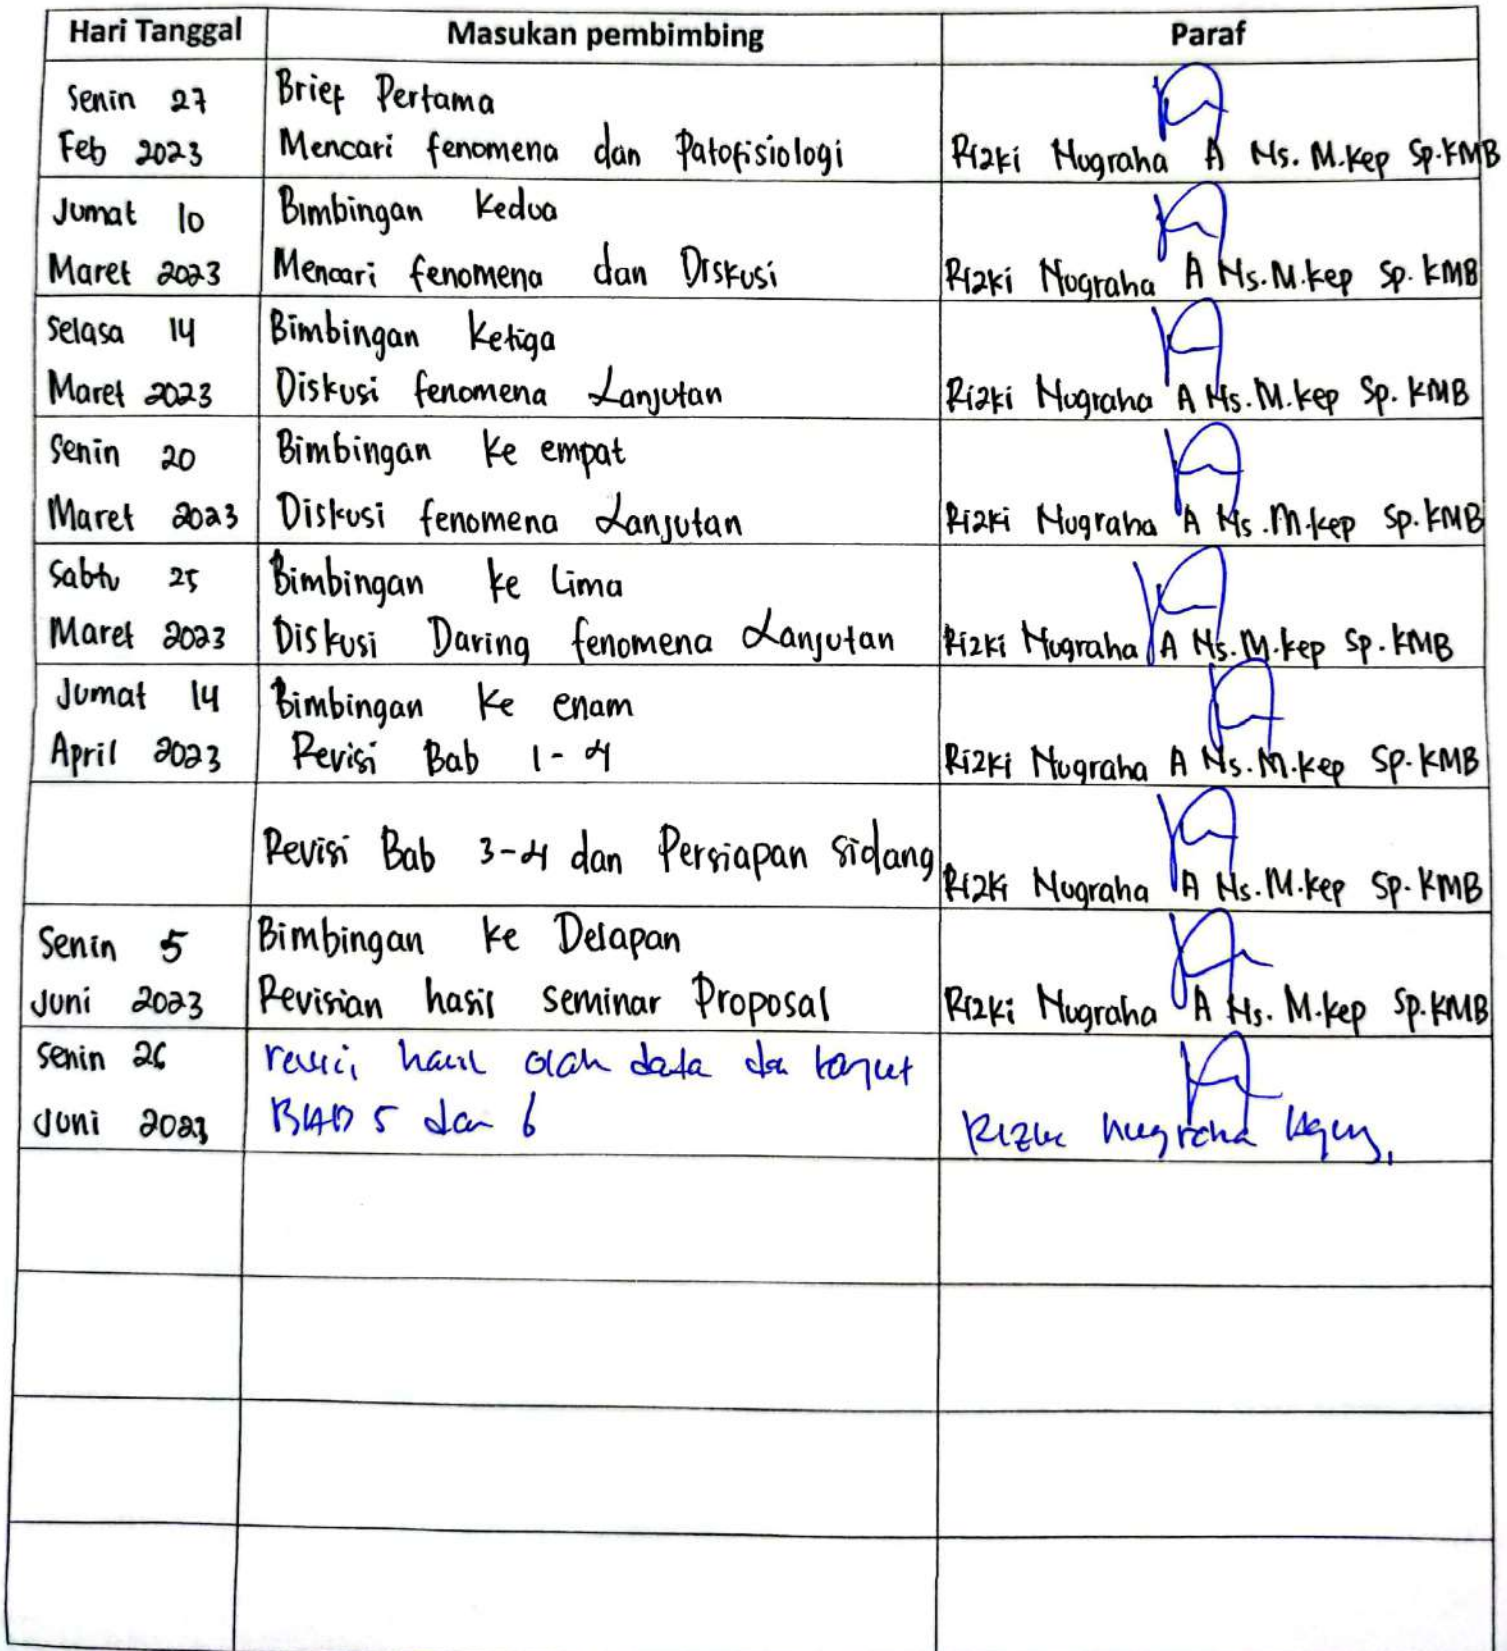 Hari Tanggal Masukan pembimbing Paraf
Senin 27 Brief Pertama
Feb 2023 Mencari fenomena dan Patofisiologi Rizki Nugraha A Ns. M.kep Sp.KMB
Jumat 10 Bimbingan Kedua
Maret 2023 Mencari fenomena dan Diskusi Rizki Nugraha A Ns.M.kep Sp. KMB
Selasa 14 Bimbingan Ketiga
Maret 2023 Diskusi fenomena Lanjutan Rizki Nugraha A Ns.M.kep Sp. KMB
Senin 20 Bimbingan ke empat
Maret 2023 Diskusi fenomena Lanjutan Rizki Nugraha A Ns.M.kep Sp.KMB
Sabtu 25 Bimbingan ke Lima
Maret 2023 Diskusi Daring fenomena Lanjutan Rizki Nugraha A Ns.M.kep Sp.KMB
Jumat 14 Bimbingan Ke enam
April 2023 Revisi Bab 1-4 Rizki Nugraha A Ns.M.kep Sp.KMB
Revisi Bab 3-4 dan Persiapan Sidang
Rizki Nugraha A Ns.M.kep Sp.KMB
Senin 5 Bimbingan ke Delapan
Juni 2023 Revisian hasil seminar Proposal Rizki Nugraha A Ns. M.kep Sp.KMB
Senin 26 revisi hasil olah data da lanjut
Juni 2023 BAB 5 dan 6 Rizki Nugraha Agus,